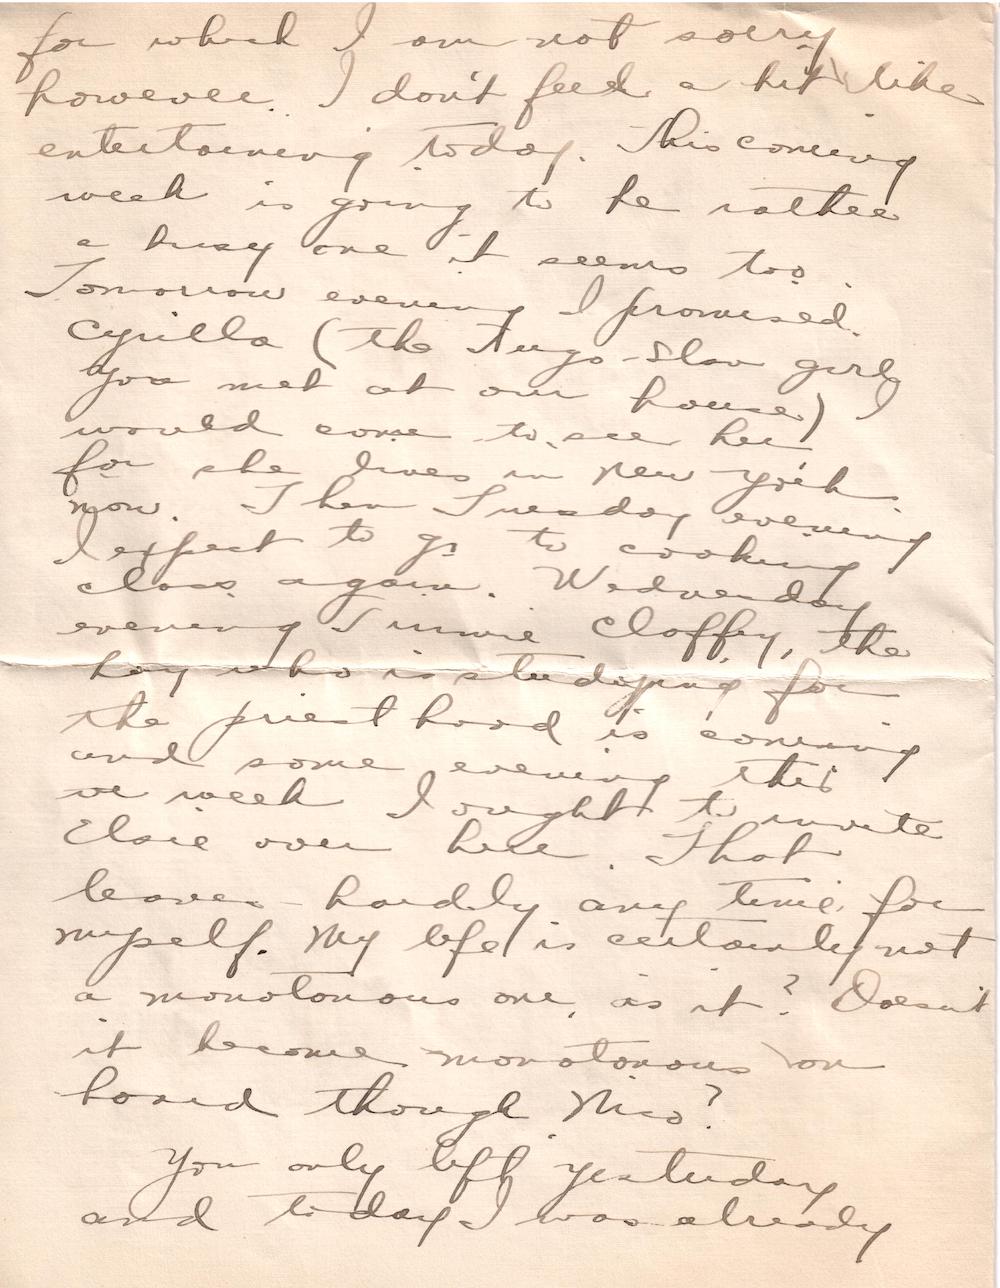 for which I am not sorry
however. I don't feel a bit like
entertaining today. This coming
week is going to be rather
a busy one it seems too.
Tomorrow evening I promised.
Cyrilla (the Jugo-Slav girl
you met at our house) I
would come to see her
for she lives in New York
now. Then Tuesday evening
I expect to go to cooking
class again. Wednesday
evening Jimmie Cloffey, the
boy who is studying for
the priesthood is coming
and some evening this
we week I ought to invite
Elsie over here. That
leaves hardly any time for
myself. My life is certainly not
a monotonous one, is it? Doesn't
it become monotonous on
board though Nico?
You only left yesterday
and today I was already